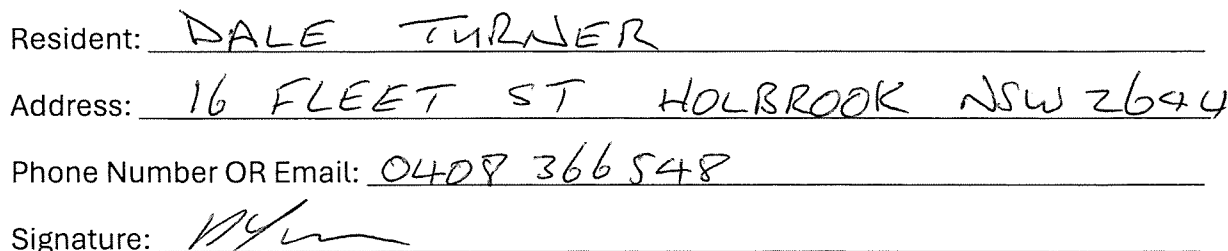 Resident: DALE TURNER
Address: 16 FLEET ST HOLBROOK NSW 2644
Phone Number OR Email: 0408 366 548
Signature: